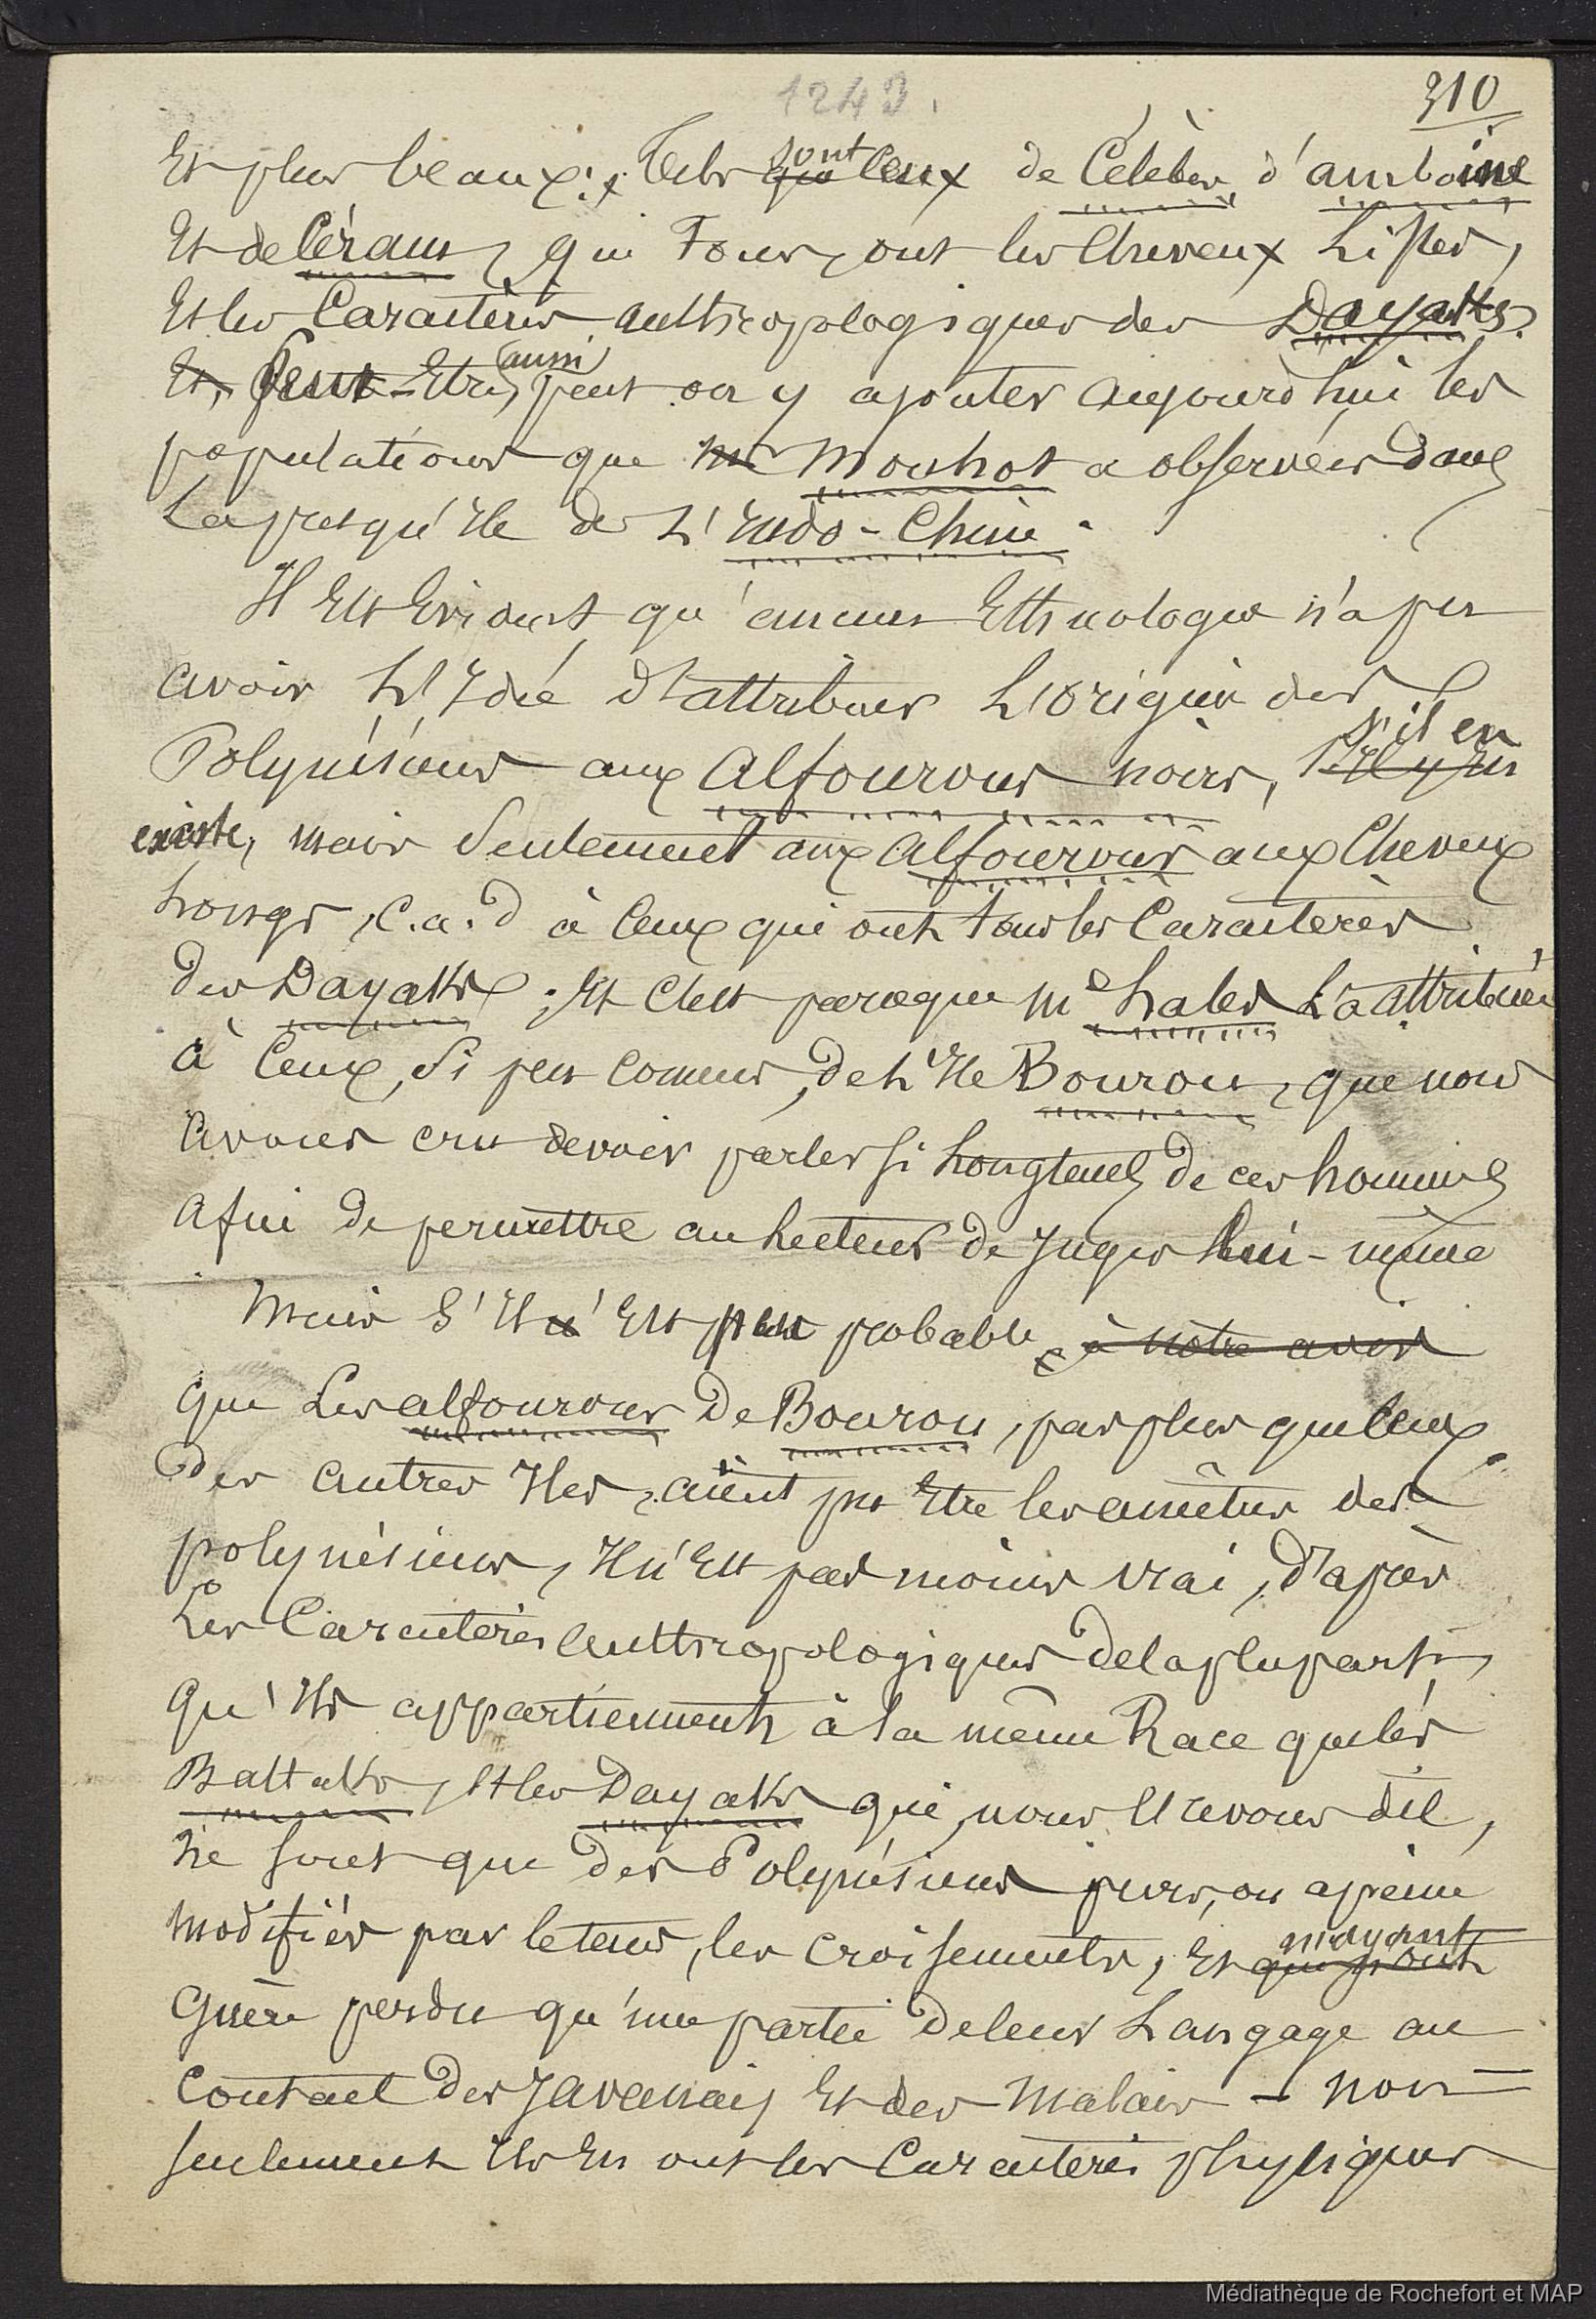 1243.
310
Et plus beaux; tels sont ceux de Célèbes, d'amboine
Et de Céram, qui Tous, ont les Cheveux Lisses,
Et les Caractères anthropologiques des Dayaks.
Et, Peut-Etre, aussi peut on y ajouter aujourd'hui les
populations que Mr Mouhot a observées dans
La presqu'Ile de L'Indo-Chine.
Il Est Evident qu'aucun Ethnologue n'a pu
avoir L'Idée d'attribuer L'Origine des
Polynésiens aux Alfourous noirs, s'il en
existe, mais Seulement aux Alfourous aux Cheveux
Longs, c.a.d à Ceux qui ont tous les Caractères
des Dayaks; Et C'est parceque Mr hales L'a attribuée
à Ceux, Si peu Connus, de L'Ile Bourou, que nous
avons cru devoir parler si Longtems de ces hommes
afin de permettre au Lecteur de Juger Lui-même
Mais S'Il Est peu probable, à notre avis
que Les alfourous de Bourou, pas plus que Ceux
des autres Iles, aient pu Etre les ancêtres des
polynésiens, Il n'Est pas moins vrai, d'après
Les Caractères anthropologiques de la plupart,
qu'Ils appartiennent à la même Race que les
Battaks, Et les Dayaks qui, nous L'avons dit,
ne sont que des Polynésiens purs, ou a peine
modifiés par le tems, les croisements, Et n'ayant
Guère perdu qu'une partie de leur Langage au
Contact des Javanais Et des Malais - non
seulement Ils En ont les Caractères physiques
Médiathèque de Rochefort et MAP